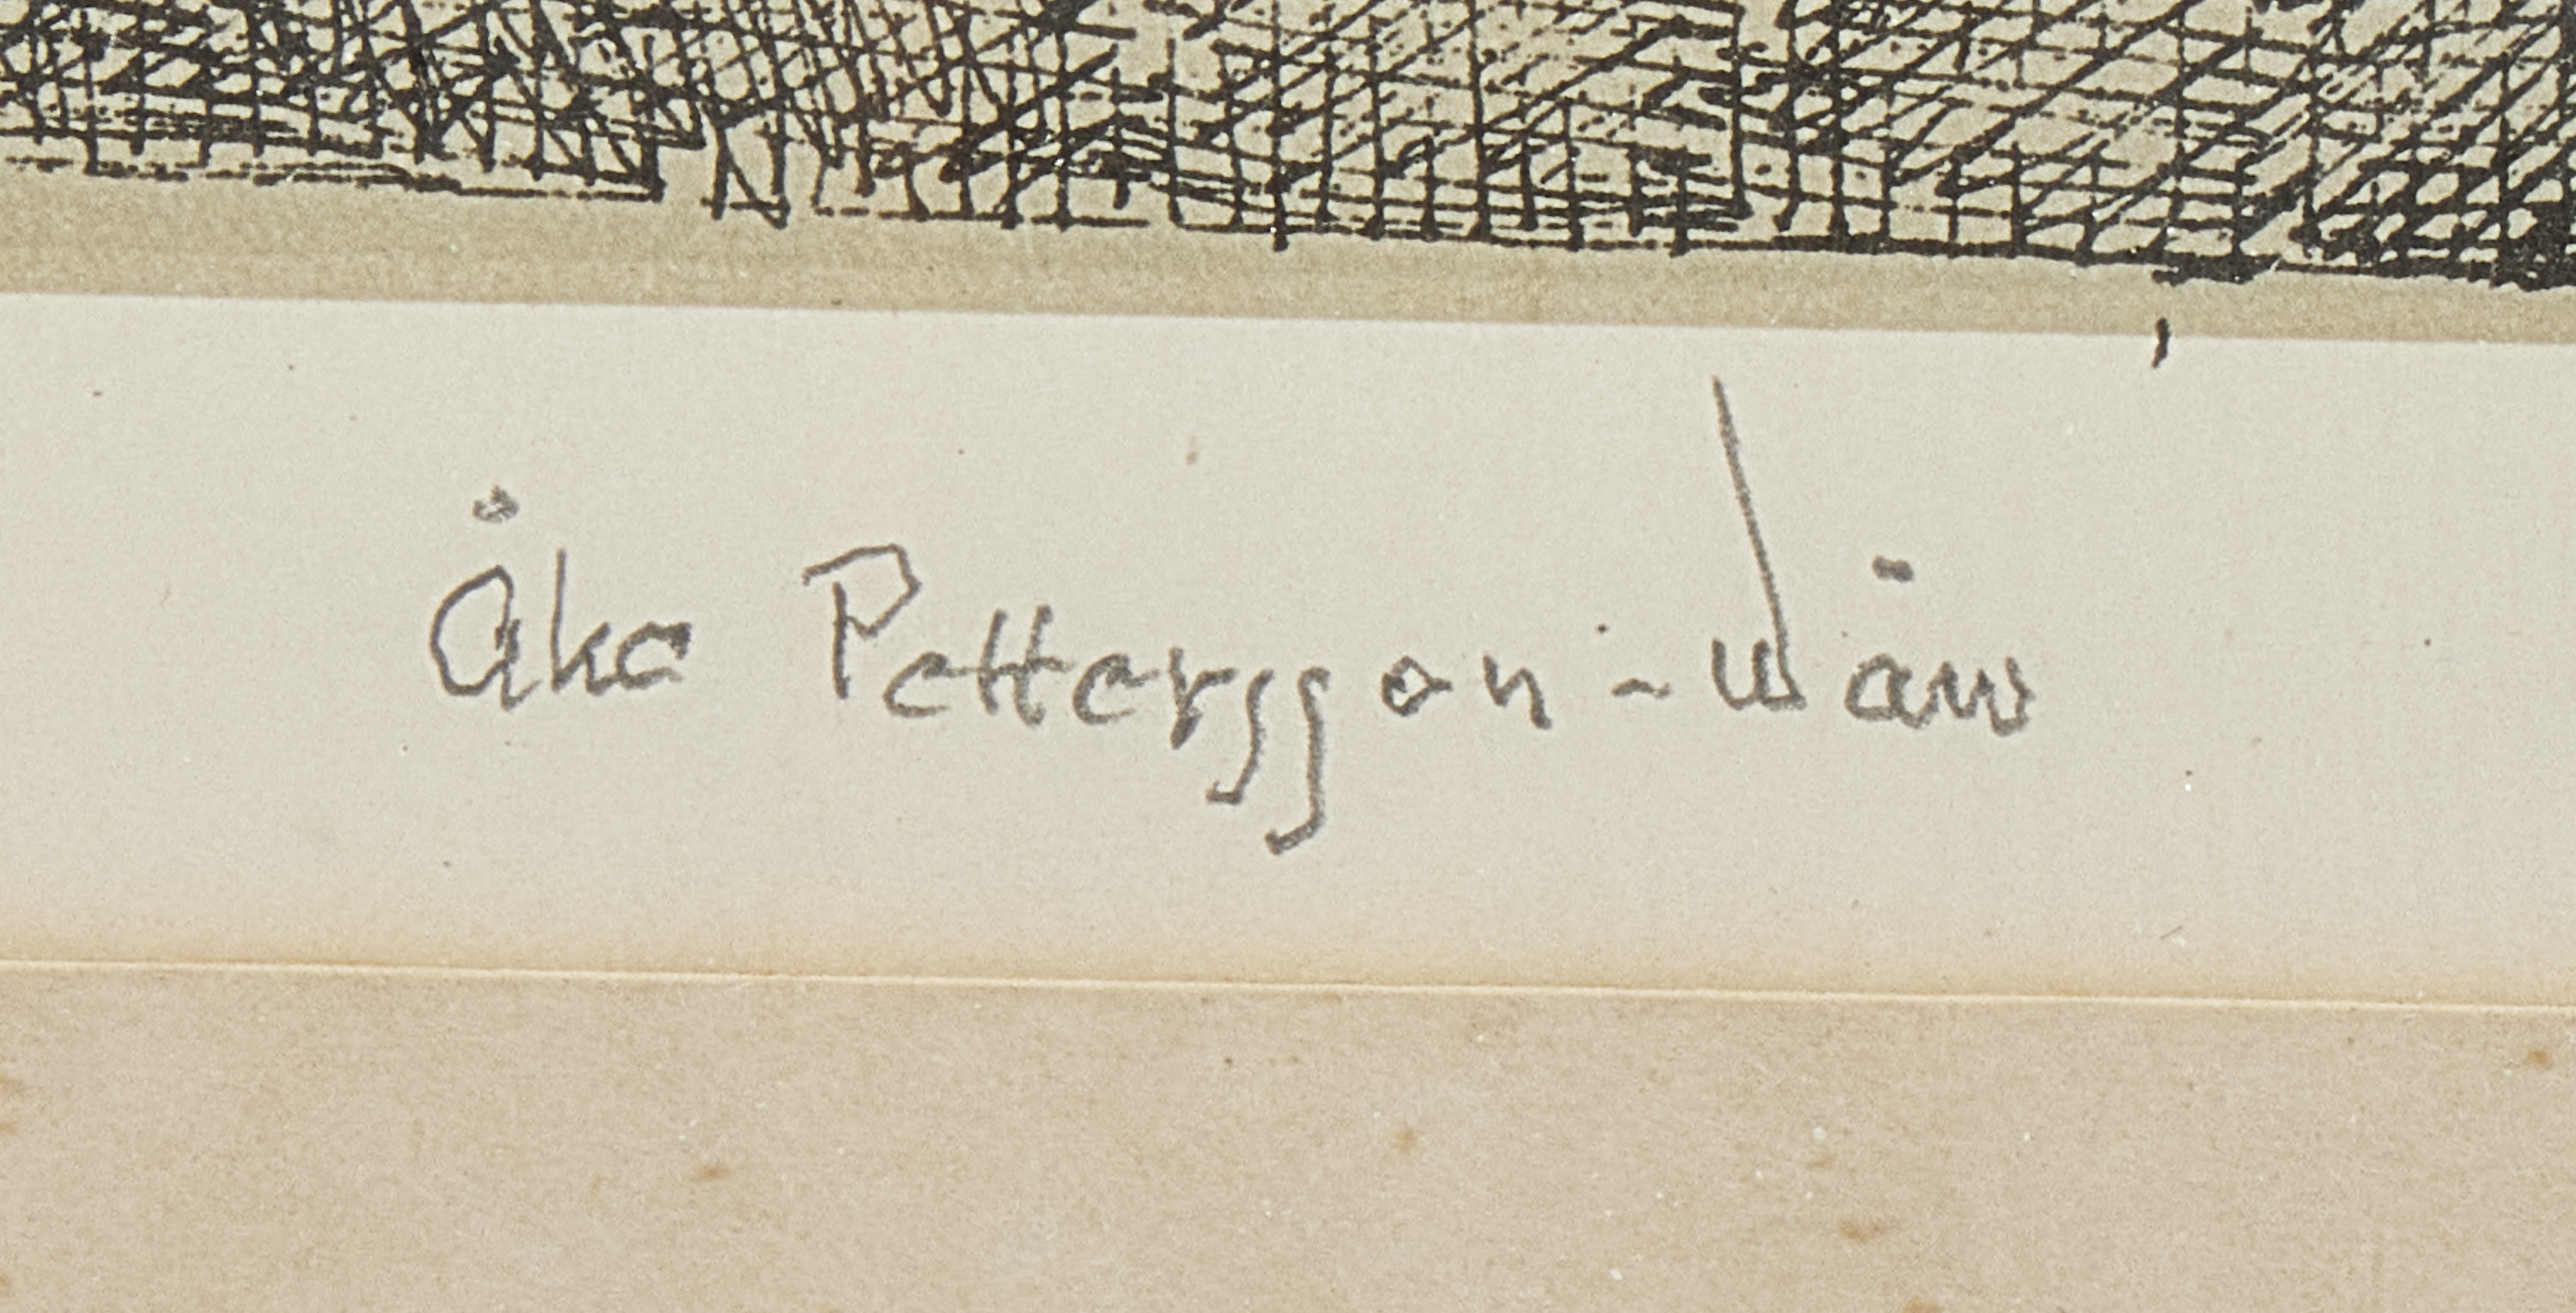 Åke Pettersson-Wäw